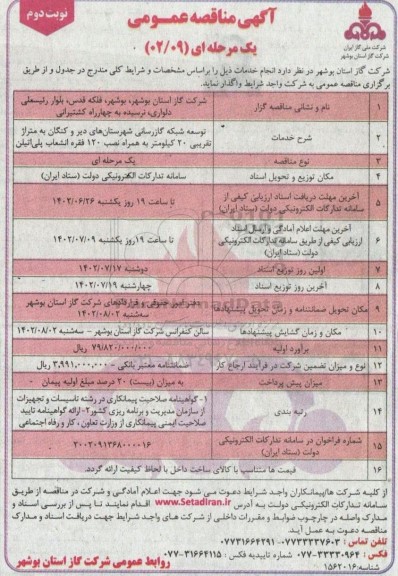 نوبت دوم
آگهی مناقصه عمومی
یک مرحله ای (۰۲/۰۹)
شرکت ملی گاز ایران
شرکت گاز استان بوشهر
شرکت گاز استان بوشهر در نظر دارد انجام خدمات ذیل را براساس مشخصات و شرایط کلی مندرج در جدول و از طریق
برگزاری مناقصه عمومی به شرکت واجد شرایط واگذار نماید.
۱ نام و نشانی مناقصه گزار شرکت گاز استان بوشهر، بوشهر، فلکه قدس، بلوار رئیسعلی
دلواری، نرسیده به چهارراه کشتیرانی
۲ شرح خدمات توسعه شبکه گازرسانی شهرستان‌های دیر و کنگان به متراژ
تقریبی ۲۰ کیلومتر به همراه نصب ۱۲۰ فقره انشعاب پلی‌اتیلن
۳ نوع مناقصه یک مرحله ای
۴ مکان توزیع و تحویل اسناد سامانه تدارکات الکترونیکی دولت (ستاد ایران)
۵ آخرین مهلت دریافت اسناد ارزیابی کیفی از
سامانه تدارکات الکترونیکی دولت (ستاد ایران) تا ساعت ۱۹ روز یکشنبه ۱۴۰۲/۰۶/۲۶
۶ آخرین مهلت اعلام آمادگی و ارسال اسناد
ارزیابی کیفی از طریق سامانه تدارکات الکترونیکی
دولت (ستاد ایران) تا ساعت ۱۹ روز یکشنبه ۱۴۰۲/۰۷/۰۹
۷ اولین روز توزیع اسناد دوشنبه ۱۴۰۲/۰۷/۱۷
۸ آخرین روز توزیع اسناد چهارشنبه ۱۴۰۲/۰۷/۱۹
۹ مکان تحویل ضمانتنامه و زمان تحویل پیشنهادها دفتر امور حقوقی و قراردادهای شرکت گاز استان بوشهر
سه‌شنبه ۱۴۰۲/۰۸/۰۲
۱۰ مکان و زمان گشایش پیشنهادها سالن کنفرانس شرکت گاز استان بوشهر - سه‌شنبه ۱۴۰۲/۰۸/۰۲
۱۱ برآورد اولیه ۷۹/۸۲۰/۰۰۰/۰۰۰ ریال
۱۲ نوع و میزان تضمین شرکت در فرآیند ارجاع کار ضمانتنامه معتبر بانکی - ۳,۹۹۱,۰۰۰,۰۰۰ ریال
۱۳ میزان پیش پرداخت به میزان (بیست) ۲۰ درصد مبلغ اولیه پیمان
۱۴ رتبه بندی ۱- گواهینامه صلاحیت پیمانکاری در رشته تاسیسات و تجهیزات
از سازمان مدیریت و برنامه ریزی کشور ۲- ارائه گواهینامه تایید
صلاحیت ایمنی پیمانکاری از وزارت تعاون، کار و رفاه اجتماعی
۱۵ شماره فراخوان در سامانه تدارکات الکترونیکی
دولت (ستاد ایران) ۲۰۰۲۰۹۱۳۶۸۰۰۰۰۱۶
۱۶ قیمت ها متناسب با کالای ساخت داخل با لحاظ کیفیت ارائه گردد.
از کلیه شرکت ها/پیمانکاران واجد شرایط دعوت می شود جهت اعلام آمادگی و شرکت در مناقصه از طریق
سامانه تدارکات الکترونیکی دولت به آدرس www.SetadIran.ir اقدام نمایند تا پس از بررسی اسناد و
مدارک واصله در چارچوب ضوابط و مقررات داخلی از شرکت های واجد شرایط جهت دریافت اسناد و مدارک
مناقصه دعوت به عمل آید.
تلفن تماس: ۰۷۷۳۳۳۳۷۶۰۳ - ۰۷۷۳۱۶۶۴۲۹۱
فکس: ۳۳۳۳۰۹۶۴-۰۷۷ شماره تاییدیه فکس: ۳۱۶۶۴۱۱۵-۰۷۷
شناسه: ۱۵۶۲۰۱۶
روابط عمومی شرکت گاز استان بوشهر